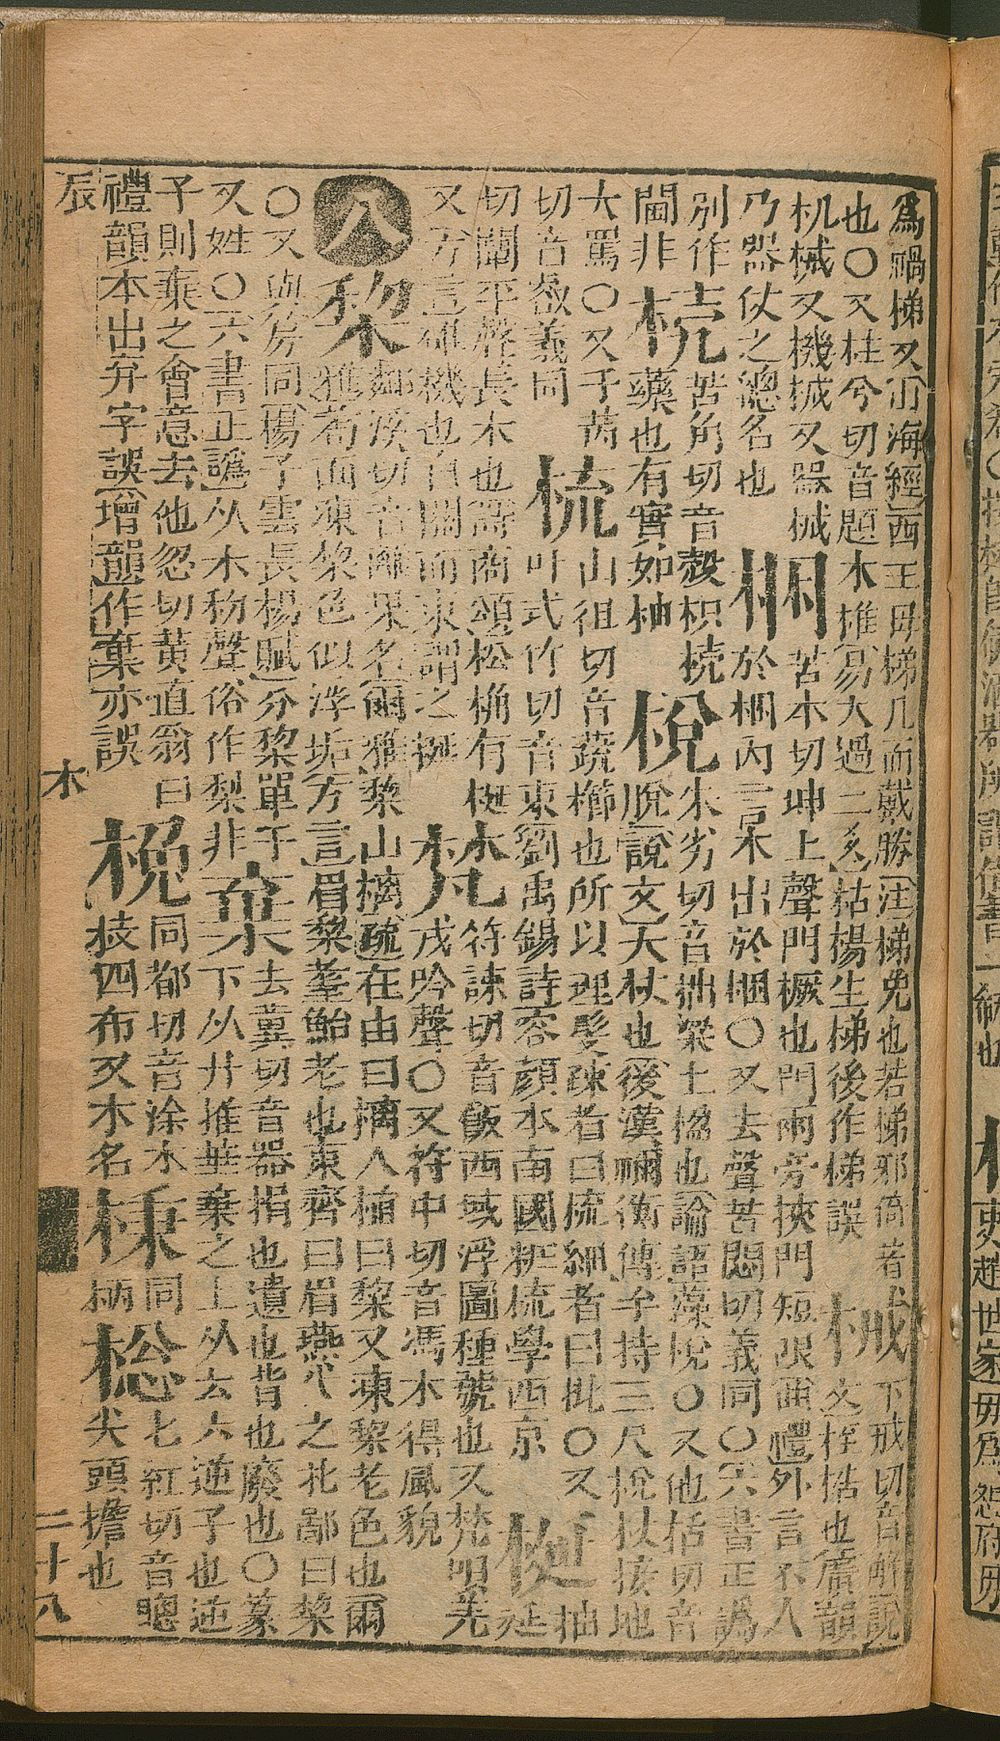 爲禍梯又山海經西王母梯几而戴勝注梯凭也若梯邪倚著 械 下戒切音解說
也〇又柱兮切音題木稚易大過二爻枯楊生梯後作稊誤 文桎梏也廣韻
杌械又機械又器械 梱 苦本切坤上聲門橛也門兩旁挾門短限曲禮外言不入
乃器仗之總名也 於梱內言不出於梱〇又去聲苦悶切義同〇六書正譌
別作 㮡 苦角切音殼枳㮡 梲 朱劣切音拙梁上楹也論語藻梲〇又他括切音
閫非 藥也有實如柚 脫說文大杖也後漢禰衡傳手持三尺梲以杖地
大罵〇又千 梳 山徂切音蔬櫛也所以理髮疎者曰梳細者曰枇〇又 梴 抽
切音 義同 叶式竹切音束劉禹錫詩容顏本南國粧梳學西京 延
切闡平聲長木也詩商頌松桷有梴 梵 符諫切音飯西域浮圖種號也又梵唄羌
又方言碓機也自關而東謂之梴 戎吟聲〇又符中切音馮木得風貌
八 棃 鄰溪切音離果名爾雅棃山樆疏在山曰樆人植曰棃又凍棃老色也爾
雅耇面凍棃色似浮垢方言眉棃耋鮐老也東齊曰眉燕代之北鄙曰棃
〇又與 同楊子雲長楊賦分棃單于 棄 去冀切音器捐也遺也背也廢也〇篆
又姓〇六書正譌从木 聲俗作梨非 下从廾推 棄之上从𠫓 逆子也逆
子則棄之會意去他忽切黃直翁曰 梲 同都切音涂木 棟 同 棇 七紅切音聰
禮韻本出弃字誤增韻作棄亦誤 枝四布又木名 柄 尖頭擔也
辰 木 二十八